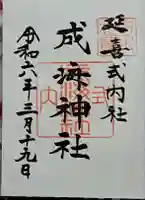 延喜式内社
成海神社
令和六年三月十九日